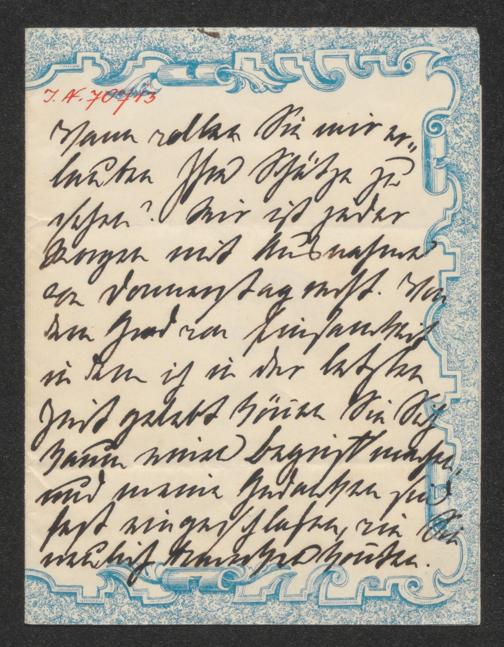 I. N. 70713
Wann wollen Sie mir er-
lauben Ihre Schätze zu
sehen? Mir ist jeder
Morgen mit Ausnahme
von Donnerstag recht. Von
dem Grad von Einsamkeit
in dem ich in der letzten
Zeit gelebt können Sie Sich
kaum einen Begriff machen,
und meine Gedanken sind
fast eingeschlafen, wie Sie
neulich bemerken konnten.